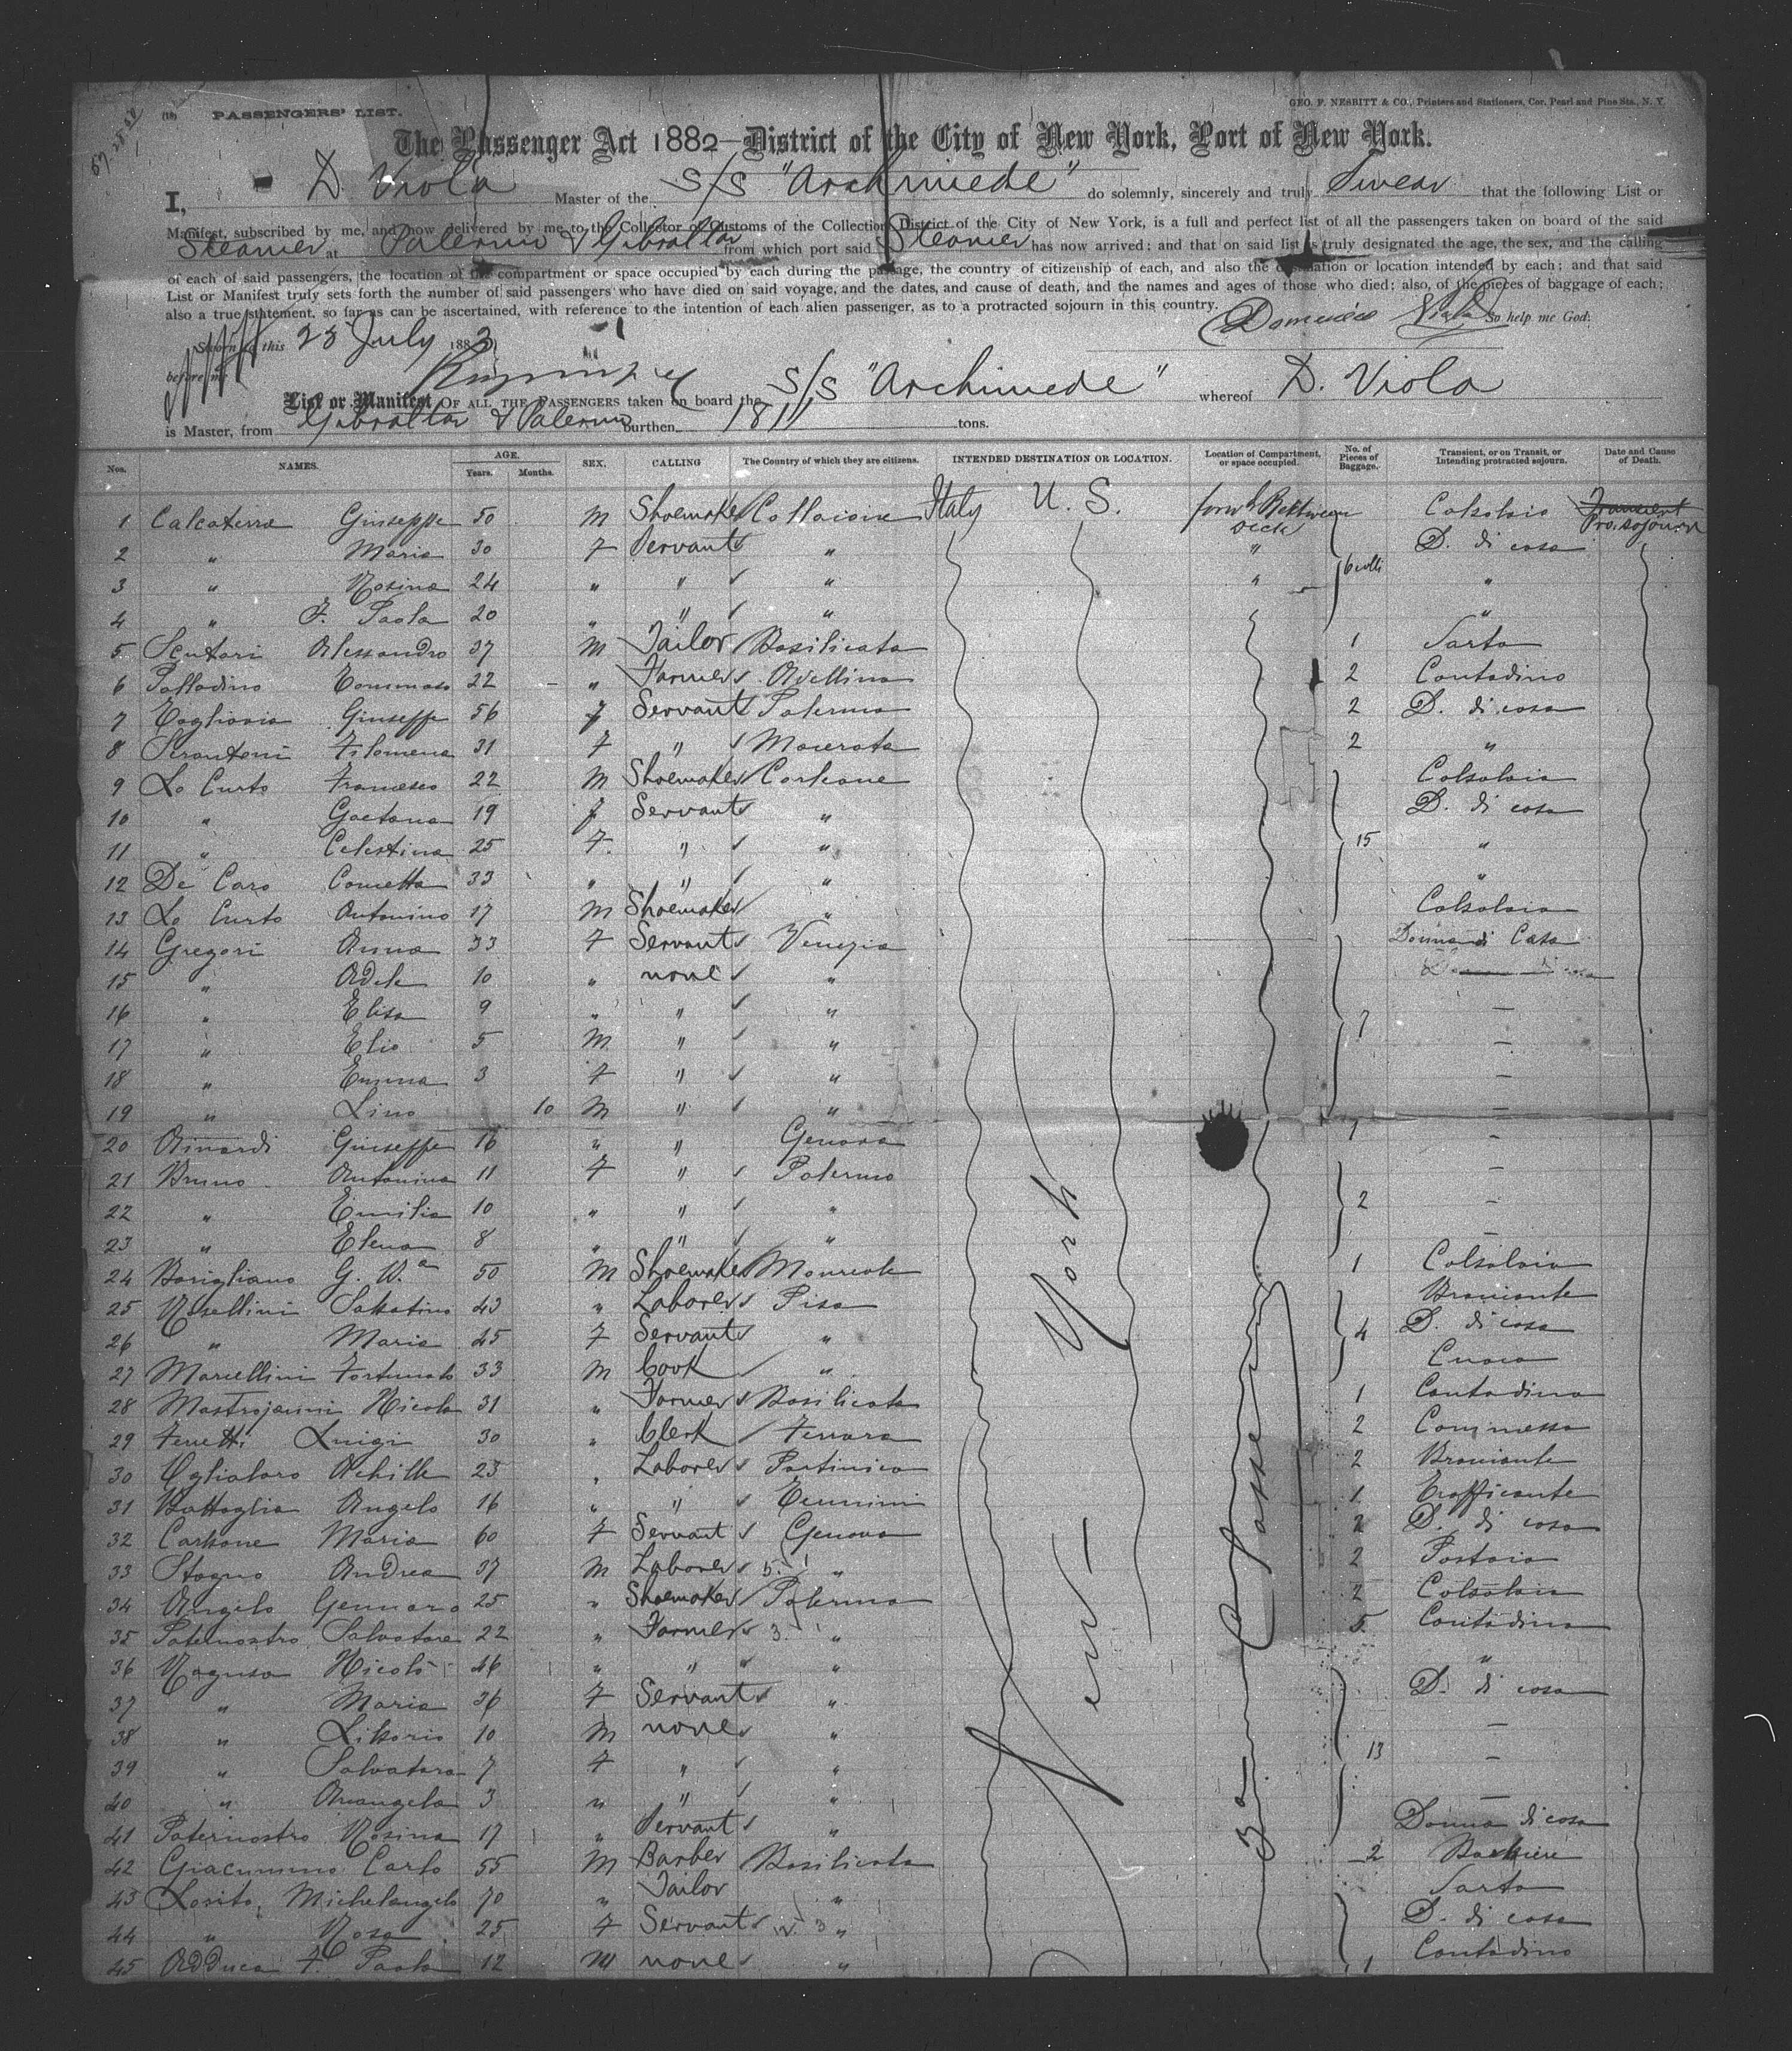 (18) PASSENGERS' LIST.
GEO. F. NESBITT & CO., Printers and Stationers, Cor. Pearl and Pine Sts., N. Y.
The Passenger Act 1882—District of the City of New York, Port of New York.
I, D. Viola Master of the S/S "Archimede" do solemnly, sincerely and truly Swear that the following List or
Manifest, subscribed by me, and now delivered by me to the Collector of Customs of the Collection District of the City of New York, is a full and perfect list of all the passengers taken on board of the said
Steamer at Palermo & Gibraltar from which port said Steamer has now arrived; and that on said list is truly designated the age, the sex, and the calling
of each of said passengers, the location of the compartment or space occupied by each during the passage, the country of citizenship of each, and also the destination or location intended by each; and that said
List or Manifest truly sets forth the number of said passengers who have died on said voyage, and the dates, and cause of death, and the names and ages of those who died; also, of the pieces of baggage of each;
also a true statement, so far as can be ascertained, with reference to the intention of each alien passenger, as to a protracted sojourn in this country.
Domenico Viola So help me God:
Sworn to this 25 July 1883
before me
List or Manifest OF ALL THE PASSENGERS taken on board the S/S "Archimede" whereof D. Viola
is Master, from Gibraltar & Palermo burthen 1811 tons.
Nos. NAMES. AGE. Years. Months. SEX. CALLING The Country of which they are citizens. INTENDED DESTINATION OR LOCATION. Location of Compartment, or space occupied. No. of Pieces of Baggage. Transient, or on Transit, or Intending protracted sojourn. Date and Cause of Death.
1 Calcaterra Giuseppe 50 M Shoemaker Italy U. S. Calsolaio Transient Pro. sojourn
2 " Maria 30 F Servant " " D. di casa
3 " Rosina 24 " " " " 6 colli "
4 " F. Paola 20 " " " "
5 Scutari Alessandro 37 M Tailor Basilicata 1 Sarto
6 Palladino Tommaso 22 " Farmer Avellino 2 Contadino
7 Giuseppe 56 f Servant Palermo 2 D. di casa
8 Filomena 31 F " Macerata 2 "
9 Lo Curto Francesco 22 M Shoemaker Corleone Calsolaio
10 " Gaetana 19 f Servant " D. di casa
11 " Celestina 25 F " " 15 "
12 De Caro 33 " " " "
13 Lo Curto Antonino 17 M Shoemaker " Calsolaio
14 Gregori Anna 33 F Servant Venezia Donna di Casa
15 " Adele 10 " none "
16 " Elisa 9 " " " —
17 " Elio 5 M " " 7 —
18 " Emma 3 F " " —
19 " Lino 10 M " " —
20 Rinardi Giuseppe 16 " " Genova 1 —
21 Bruno Antonina 11 F " Palermo —
22 " Emilia 10 " " " 2 —
23 " Elena 8 " " " —
24 Barigliano 50 M Shoemaker Monreale 1 Calsolaio
25 Rosellini Sabatino 43 " Laborer Pisa Bracciante
26 " Maria 45 F Servant " 4 D. di casa
27 Marcellini Fortunato 33 M Cook " Cuoco
28 Mastrojanni Nicola 31 " Farmer Basilicata 1 Contadino
29 Ferretti Luigi 30 " Clerk Ferrara 2 Commesso
30 Ogliatoro Achille 23 " Laborer Partinico 2 Bracciante
31 Battaglia Angelo 16 " " 1 Trafficante
32 Carbone Maria 60 F Servant Genova 2 D. di casa
33 Stagno Andrea 37 M Laborer " 2
34 Angelo Gennaro 25 " Shoemaker Palermo 2 Calsolaio
35 Paternostro Salvatore 22 " Farmer " 5 Contadino
36 Ragusa Nicolò 46 " " " "
37 " Maria 36 F Servant " D. di casa
38 " Liborio 10 M none " —
39 " Salvatora 7 F " " 13 —
40 " Arcangela 3 " " " —
41 Paternostro Rosina 17 " Servant " Donna di casa
42 Giacummo Carlo 55 M Barber Basilicata 2 Barbiere
43 Losito Michelangelo 70 " Tailor " Sarto
44 " Rosa 25 F Servant " D. di casa
45 Adduca F. Paolo 12 M none " 1 Contadino
New York